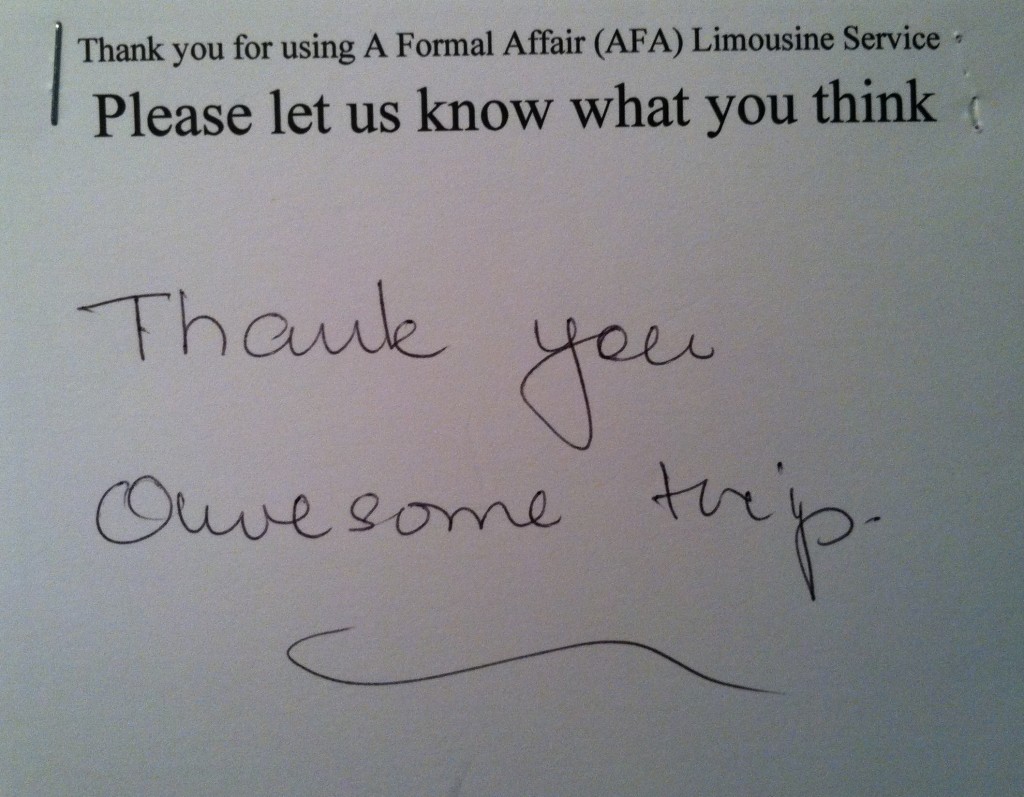 Thank you for using A Formal Affair (AFA) Limousine Service
Please let us know what you think
Thank you
Awesome trip.